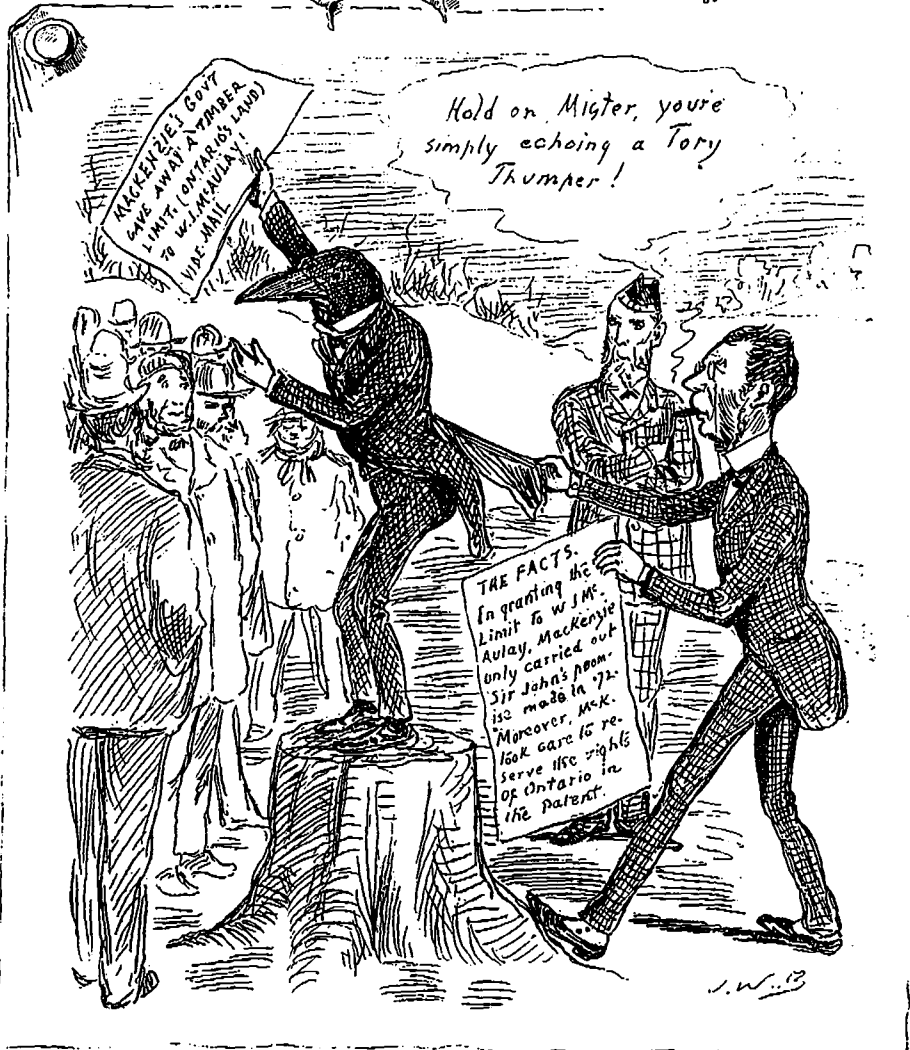 MACKENZIE'S GOV'T
GAVE AWAY A TIMBER
LIMIT, (ONTARIO'S LAND)
TO W.J. McAULAY!
VIDE MAIL
Hold on Mister, you're
simply echoing a Tory
Thumper!
THE FACTS.
In granting the
Limit To W J Mc-
Aulay, Mackenzie
only carried out
Sir John's prom-
ise made in '72.
Moreover, McK.
took care to re-
serve the rights
of Ontario in
the Patent.
J.W.B